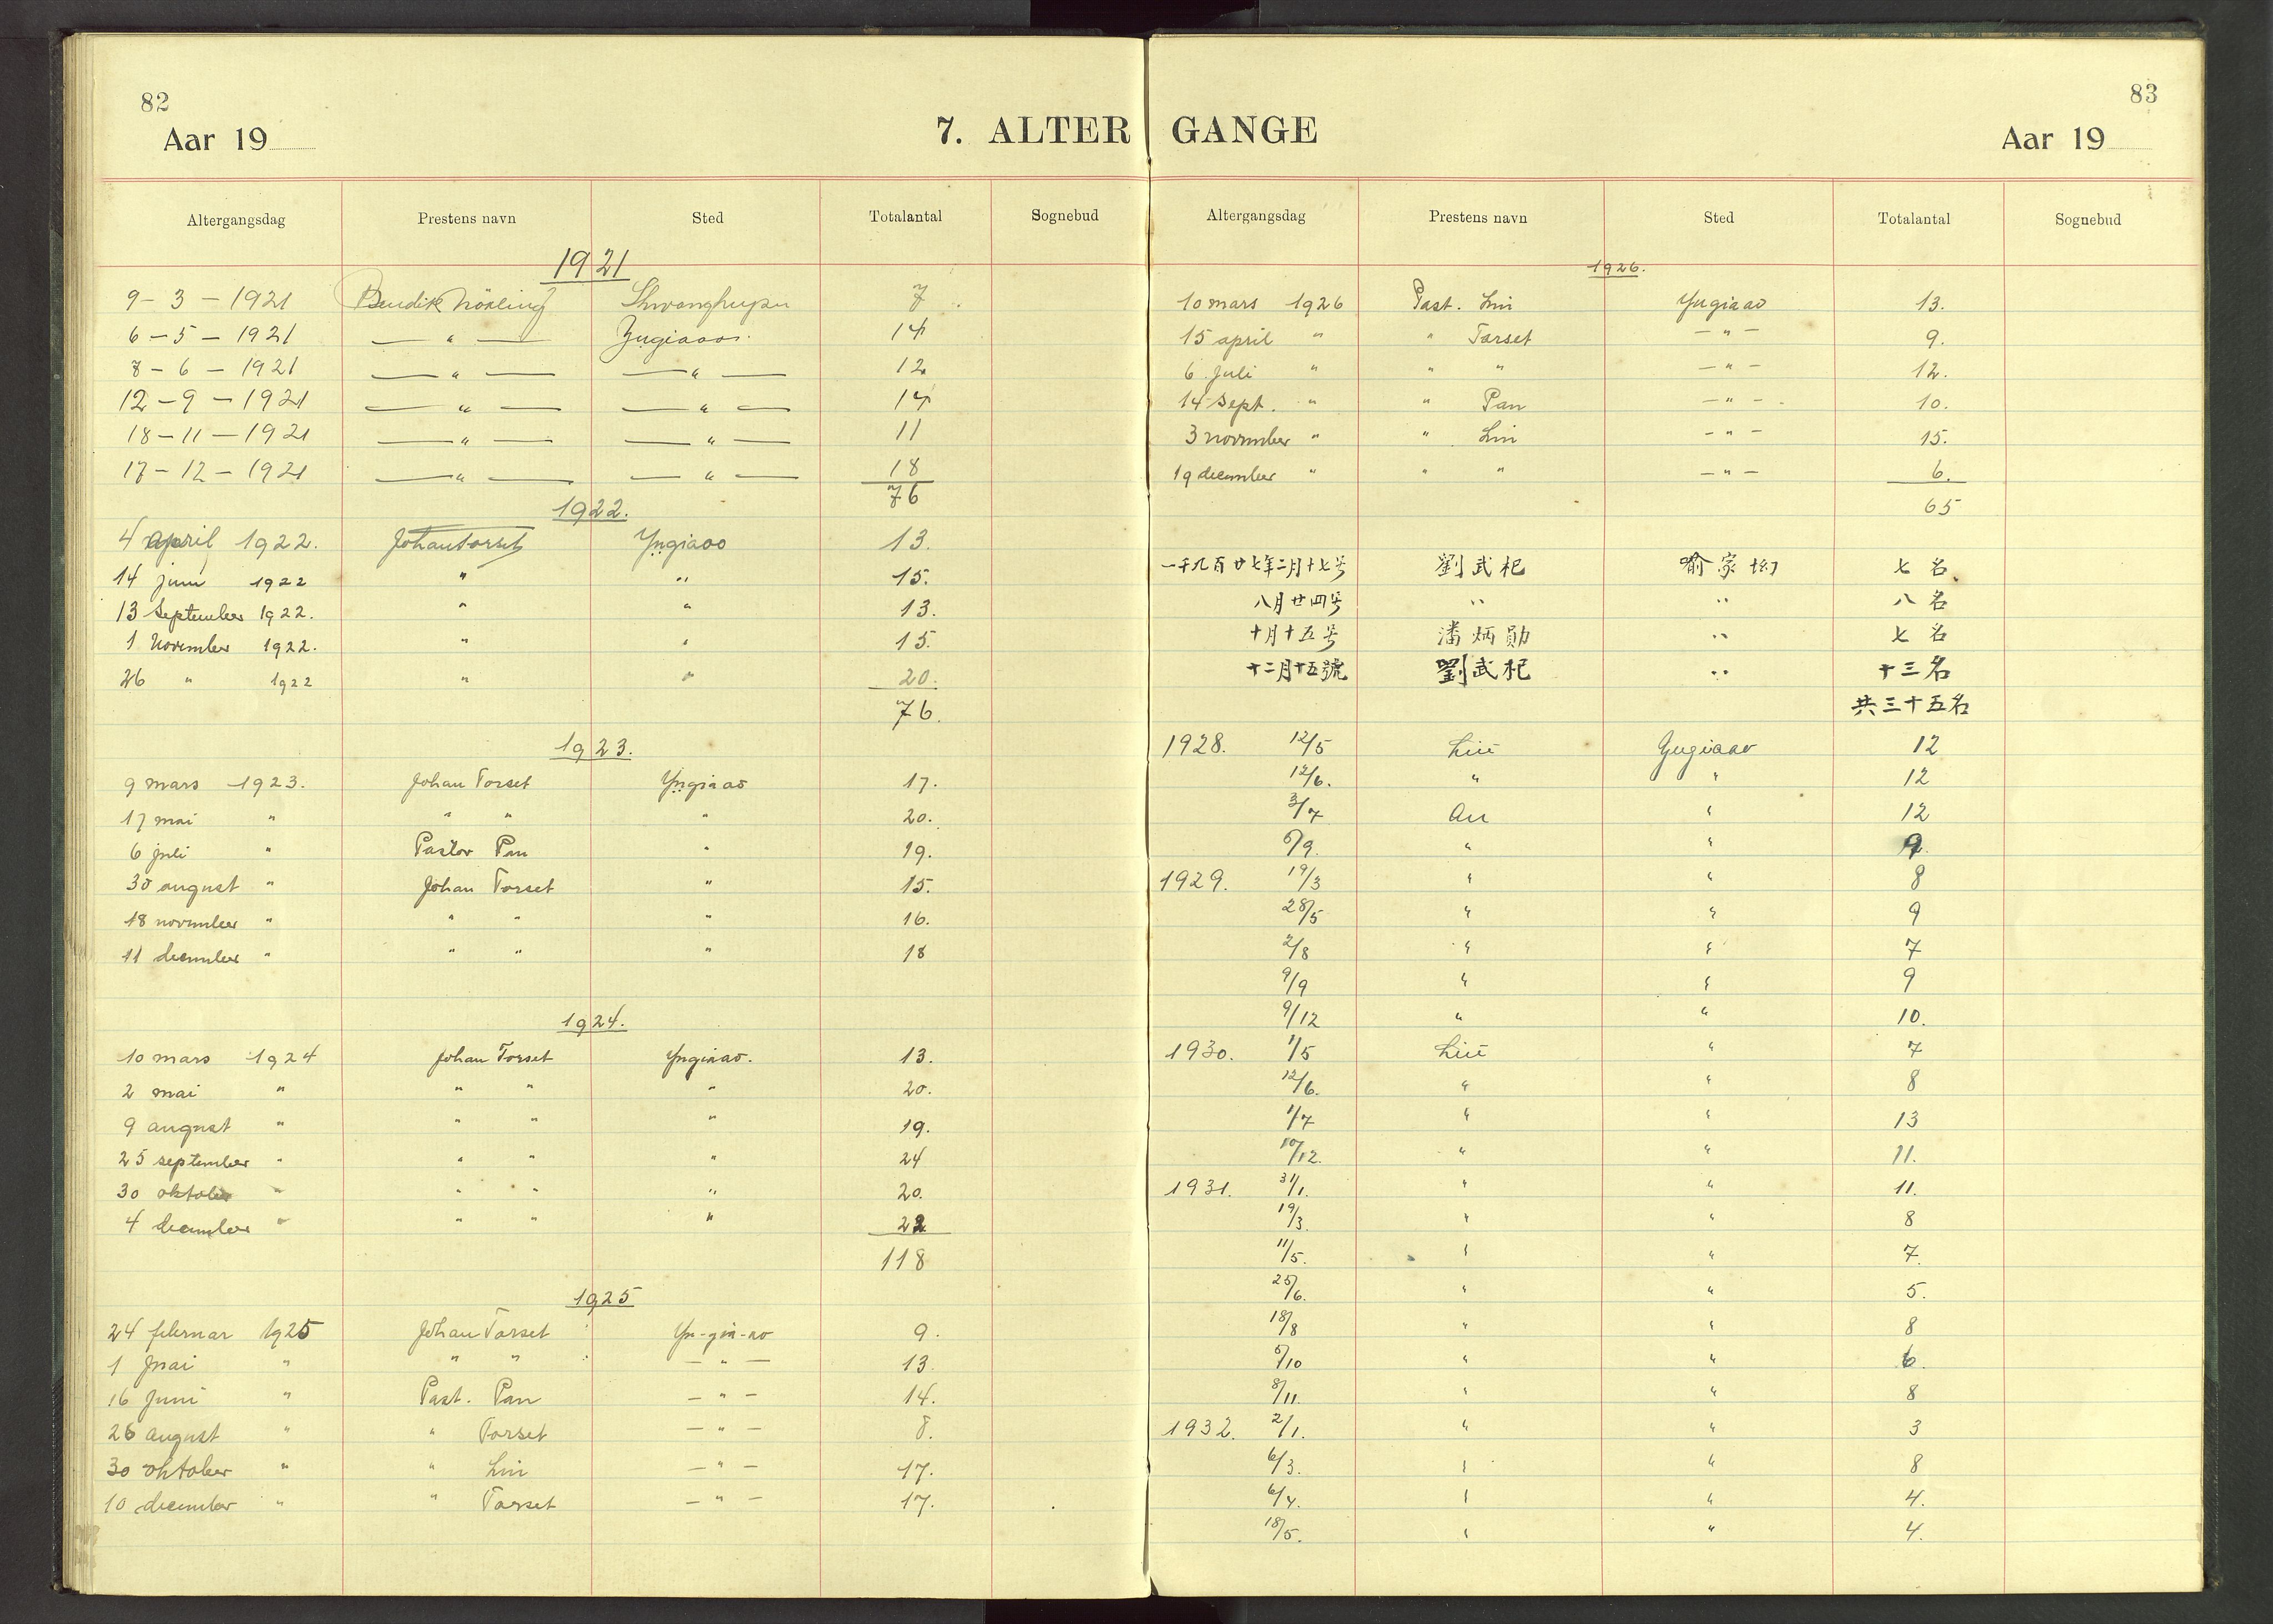 82
Aar 19
7. ALTER
Altergangsdag Prestens navn Sted Totalantal Sognebud
1921
9 - 3 - 1921 Bendik 7
6 - 5 - 1921 — " — Yugiaoo. 14
8 - 6 - 1921 — " — — " — 12
12 - 9 - 1921 — " — — " — 14
18 - 11 - 1921 — " — — " — 11
17 - 12 - 1921 — " — — " — 18
76
1922.
4 april 1922. Johan Torset Yugiaoo 13.
14 juni 1922 " " 15.
13 September 1922. " " 13.
1 November 1922. " " 15.
26 " 1922 " " 20.
76.
1923.
9 mars 1923. Johan Torset Yugiaao 17.
17 mai " " " " 20.
6 juli " Pastor Pan " 19.
30 august " Johan Torset " 15.
18 november " " " " 16.
11 december " " " " 18
1924.
10 mars 1924 Johan Torset Yugiaao. 13.
2 mai " " " " 20.
9 august " " " " 19.
25 september " " " " 24
30 oktober " " " " 20.
4 december " " " " 22
118
1925
24 februar 1925 Johan Torset Yu-gia-ao 9.
1 mai " " " — " — 13.
16 Juni " Past. Pan — " — 14.
26 august " " Torset — " — 8.
30 oktober " " Liu — " — 17.
10 december " " Torset — " — 17.
83
GANGE
Aar 19
Altergangsdag Prestens navn Sted Totalantal Sognebud
1926.
10 mars 1926 Past. Liu Yugiaao 13.
15 april " " Torset — " — 9.
6 Juli " " " — " — 12.
14 Sept. " " Pan — " — 10.
3 november " " Liu — " — 15.
19 december " " " — " — 6.
65
一千九百廿七年二月十七号 劉武杞 喻家坳 七名
八月廿四号 " " 八名
十月十五号 潘炳勛 " 七名
十二月十五號 劉武杞 " 十三名
共三十五名
1928. 12/5 Liu Yugiaao 12
12/6. " " 12
3/7 Au " 12
6/9. " " 9.
1929. 19/3 " " 8
28/5 " " 9
2/8 " " 7
9/9 " " 9
9/12 " " 10.
1930. 1/5 Liu " 7
12/6. " " 8
1/7 " " 13
10/12. " " 11.
1931. 31/1. " " 11.
19/3. " " 8
11/5. " " 7.
25/6. " " 5.
18/8 " " 8
6/10 " " 6.
8/11. " " 8
1932. 2/1. " " 3
6/3. " " 8
6/4. " " 4.
18/5. " " 4.